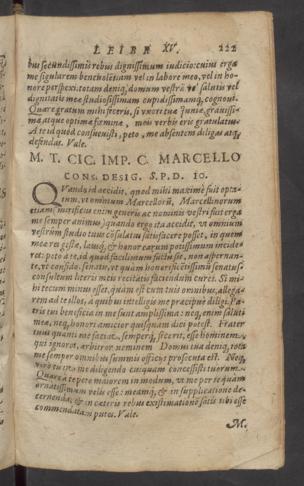 LIBER XV. 222
bus secundissimis rebus dignissimum iudicio: cuius erga
me singularem beneuolentiam vel in labore meo, vel in ho-
nore perspexi. totam deniq; domum vestrã vel salutis vel
dignitatis meæ studiosissimam cupidissimamq; cognoui.
Quare gratum mihi feceris, si vxori tuæ Iuniæ, grauissi-
mæ, atque optimæ feminæ, meis verbis eris gratulatus.
A te id quod consueuisti, peto, me absentem diligas atq;
defendas. Vale.
M. T. CIC. IMP. C. MARCELLO
CONS. DESIG. S. P. D. 10.
QVando id accidit, quod mihi maximè fuit opta-
tum, vt omnium Marcellorũ, Marcellinorum
etiam (mirificus enim generis ac nominis vestri fuit erga
me semper animus) quando ergo ita accidit, vt omnium
vestrûm studio tuus cõsulatus satisfacere posset, in quem
meæ res gestæ, lausq; & honor earum potissimum incide-
ret: peto à te, id quod facillimum factu est, non aspernan-
te, vt confido, senatu, vt quàm honorificentissimũ senatus-
consultum literis meis recitatis faciendum cures. Si mi-
hi tecum minus esset, quàm est cum tuis omnibus, allega-
rem ad te illos, à quibus intelligis me præcipuè diligi. Pa-
tris tui beneficia in me sunt amplissima: neq; enim saluti
meæ, neq; honori amicior quisquam dici potest. Frater
tuus quanti me faciat, semperq; fecerit, esse hominem,
qui ignoret, arbitror neminem. Domus tua deniq; tota
me semper omnibus summis officijs prosecuta est. Neq;
verò tu in me diligendo cuiquam concessisti tuorum.
Quare à te peto maiorem in modum, vt me per te quàm
ornatissimum velis esse: meamq; & in supplicatione de-
cernenda, & in cæteris rebus existimationẽ satis tibi esse
commendatam putes. Vale.
M.